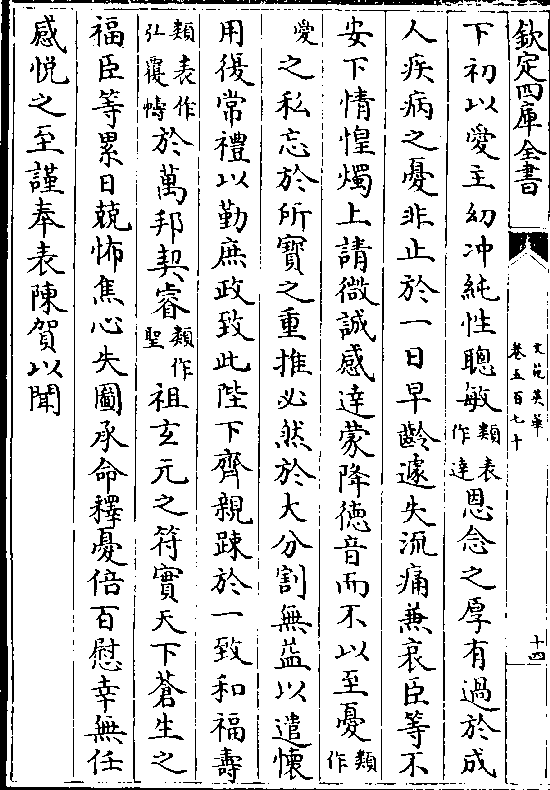 欽定四庫全書
文苑英華
卷五百七十
十四
下初以愛主幼冲純性聰敏類表作達恩念之厚有過於成
人疾病之憂非止於一日早齡遽失流痛兼哀臣等不
安下情惶燭上請微誠感達蒙降德音而不以至憂類作
愛之私忘於所寳之重推必然於大分割無益以遣懷
用復常禮以勤庶政致此陛下齊親踈於一致和福壽
類表作弘覆幬於萬邦契睿類作聖祖玄元之符實天下蒼生之
福臣等累日兢怖焦心失圖承命釋憂倍百慰幸無任
感悦之至謹奉表陳賀以聞